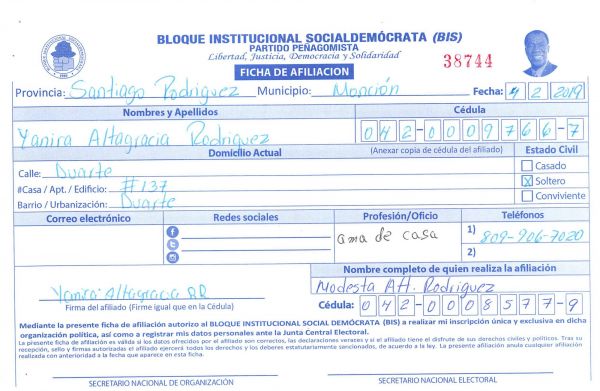 BLOQUE INSTITUCIONAL SOCIALDEMÓCRATA (BIS)
PARTIDO PEÑAGOMISTA
Libertad, Justicia, Democracia y Solidaridad
38744
FICHA DE AFILIACION
Provincia: Santiago Rodriguez Municipio: Monción Fecha: 4 2 2019
Nombres y Apellidos Cédula
Yanira Altagracia Rodriguez 042-0009766-7
Domicilio Actual (Anexar copia de cédula del afiliado) Estado Civil
Calle: Duarte Casado
#Casa / Apt. / Edificio: #137 X Soltero
Barrio / Urbanización: Duarte Conviviente
Correo electrónico Redes sociales Profesión/Oficio Teléfonos
ama de casa 1) 809-906-7020
2)
Nombre completo de quien realiza la afiliación
Yanira Altagracia RR Modesta Alt. Rodriguez
Firma del afiliado (Firme igual que en la Cédula) Cédula: 042-0008577-9
Mediante la presente ficha de afiliación autorizo al BLOQUE INSTITUCIONAL SOCIAL DEMÓCRATA (BIS) a realizar mi inscripción única y exclusiva en dicha
organización política, así como a registrar mis datos personales ante la Junta Central Electoral.
La presente ficha de afiliación es válida si los datos ofrecidos por el afiliado son correctos, las declaraciones veraces y si el afiliado tiene el disfrute de sus derechos civiles y políticos. Tras su
recepción, sello y firmas autorizadas el afiliado ejercerá todos los derechos y los deberes estatutariamente sancionados, de acuerdo a la ley. La presente afiliación anula cualquier afiliación
realizada con anterioridad a la fecha que aparece en esta ficha.
SECRETARIO NACIONAL DE ORGANIZACIÓN SECRETARIO NACIONAL ELECTORAL